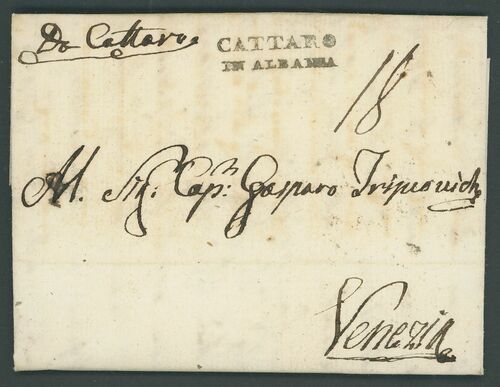 Da Cattaro
CATTARO
IN ALBANIA
18
Al. Sig: Cap:n Gasparo Tripcovich
Venezia